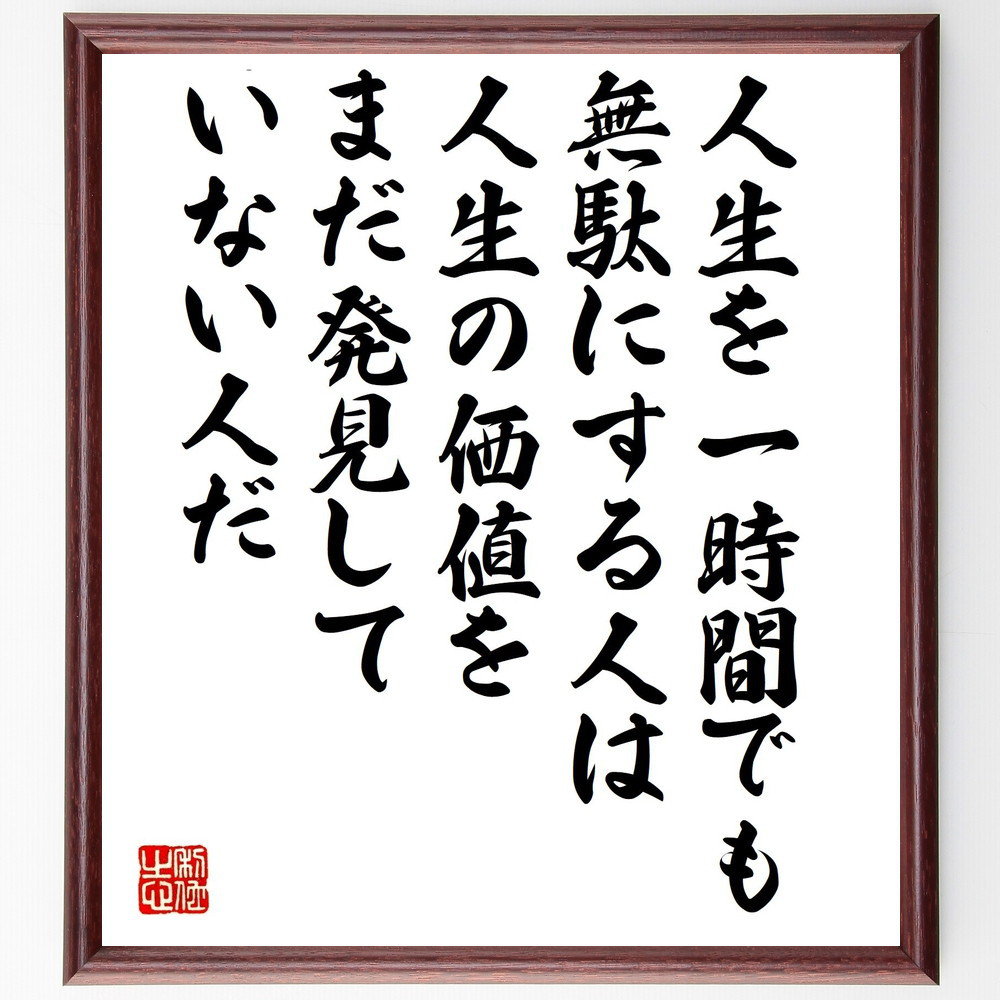 人生を一時間でも
無駄にする人は
人生の価値を
まだ発見して
いない人だ